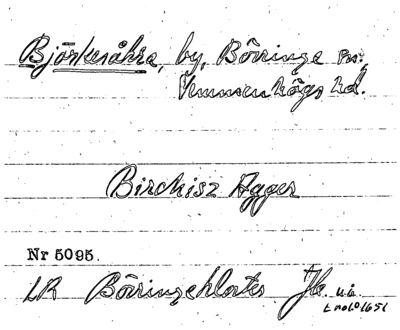 Björkesåkra, by, Börringe sn;
Vemmenhögs hd.
Birckisz Agger
Nr 5095.
LR Börringekloster Jb. u.å.
t. not. 01651